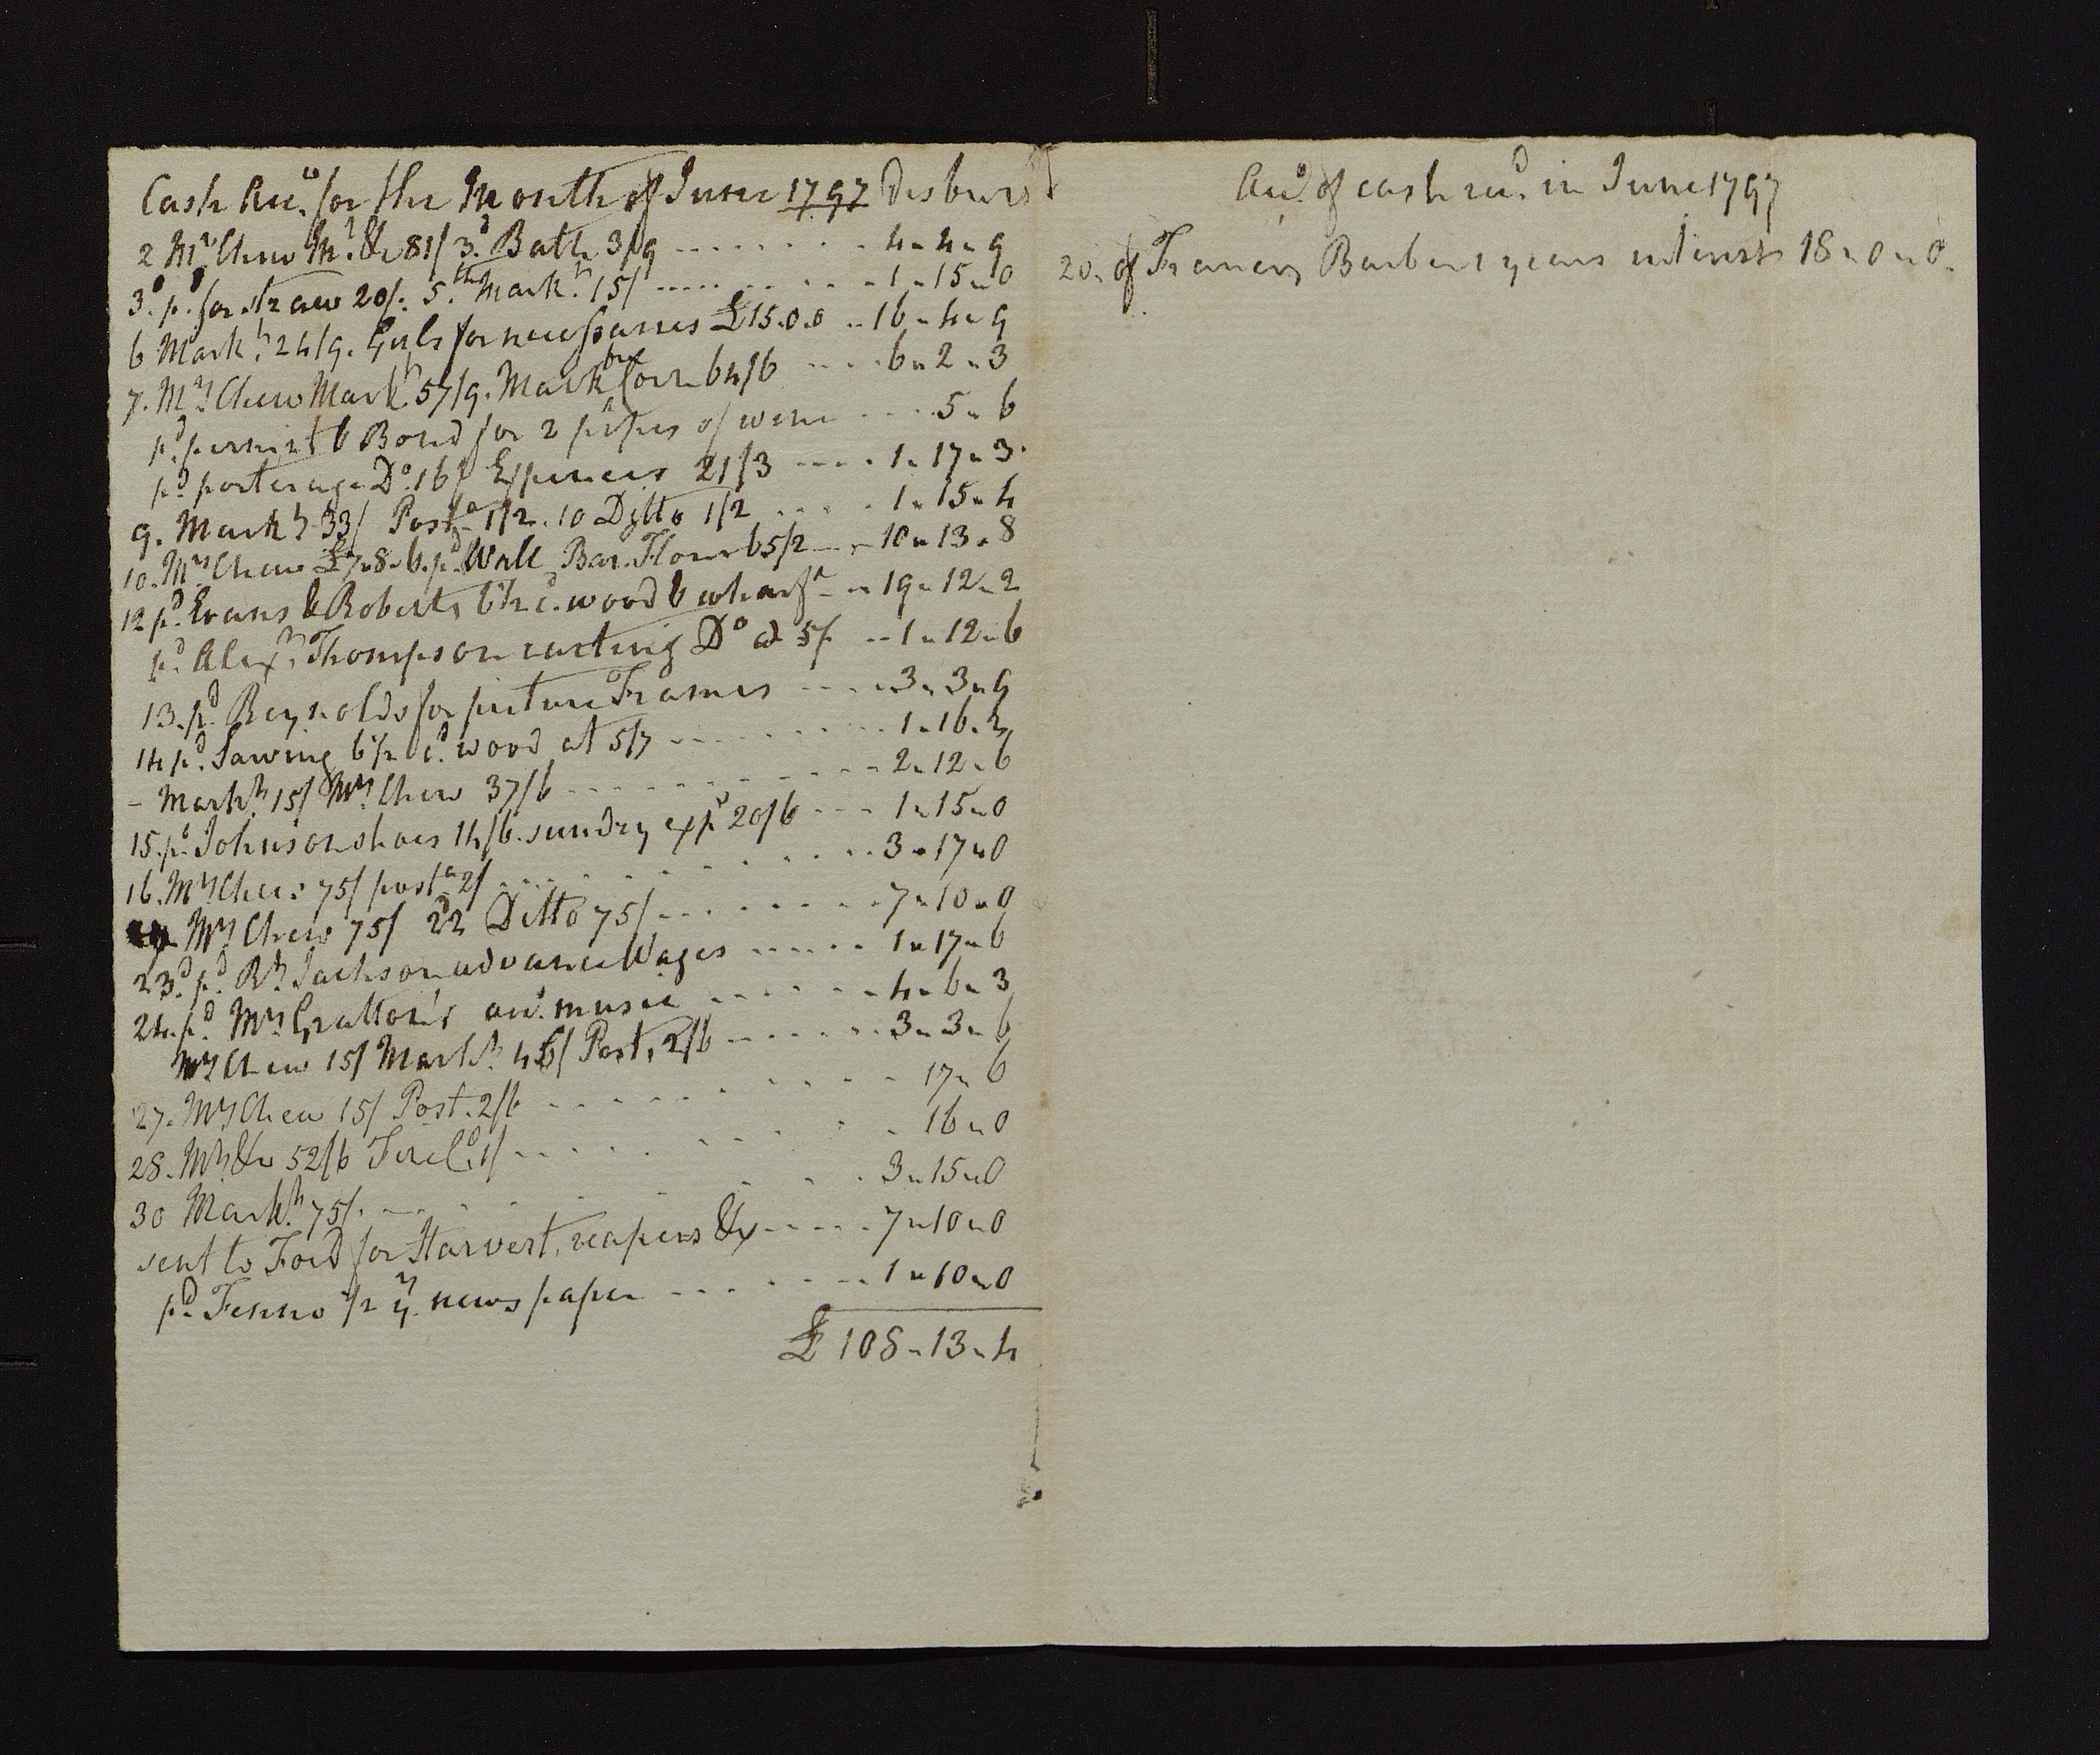 Cash Acc.o for the Month of June 1797 Disburs.d
2 Mrs Chew M.t &c 81/ 3.d Bath 3/9 ........ 4 " 4 " 9
3.d p.d for straw 20/. 5.th Mark.t 15/ .......... 1 " 15 " 0
6 Mark.t 24/9. Girls for new 15.0.0 .. 16 " 4 " 9
7. Mrs Chew Mark.t 57/9. Mark.t for Corn 64/6 .... 6 " 2 " 3
p.d permit & Bond for 2 pipes of wine .... 5 " 6
p.d porterage D.o 16/ Expences 21/3 .... 1 " 17 " 3
9. Mark.t 33/ Post.a 1/2. 10 Ditto 1/2 ..... 1 " 15 " 4
10. Mrs Chew £7.8.6. p.d Wall Bar. Flour 65/2 ... 10 " 13 " 8
12 p.d Evans & Roberts 6 1/2 c.d wood & wharf.a .. 19 " 12 " 2
p.d Alex.r Thompson carting D.o at 5/ .. 1 " 12 " 6
13. p.d Reynolds for picture Frames .... 3 " 3 " 9
14 p.d Sawing 6 1/2 c.d wood at 5/7 ........ 1 " 16 " 3
- Mark.t 15/ Mrs Chew 37/6 .......... 2 " 12 " 6
15. p.d Johnson shoes 14/6. sundry exp.s 20/6 ... 1 " 15 " 0
16. Mrs Chew 75/ post.a 2/ .......... 3 " 17 " 0
Mrs Chew 75/ 22 Ditto 75/ ........ 7 " 10 " 0
23.d p.d R.t Jackson advance Wages ..... 1 " 17 " 6
24. p.d Mrs Gratton's acc.o music ...... 4 " 6 " 3
Mrs Chew 15/ Mark.t 46/ Post. 2/6 ...... 3 " 3 " 6
27. Mrs Chew 15/ Post. 2/6 ........ 17 " 6
28. Mrs &c 52/6 1/ ........ 16 " 0
30 Mark.t 75/. ........ 3 " 15 " 0
sent to Ford for Harvest, reapers &c .... 7 " 10 " 0
p.d Fenno 1/2 y.r news paper ....... 1 " 10 " 0
£ 108 " 13 " 4
Acc.o of cash rec.d in June 1797
20. of Francis Barber 1 years interest 18 " 0 " 0.